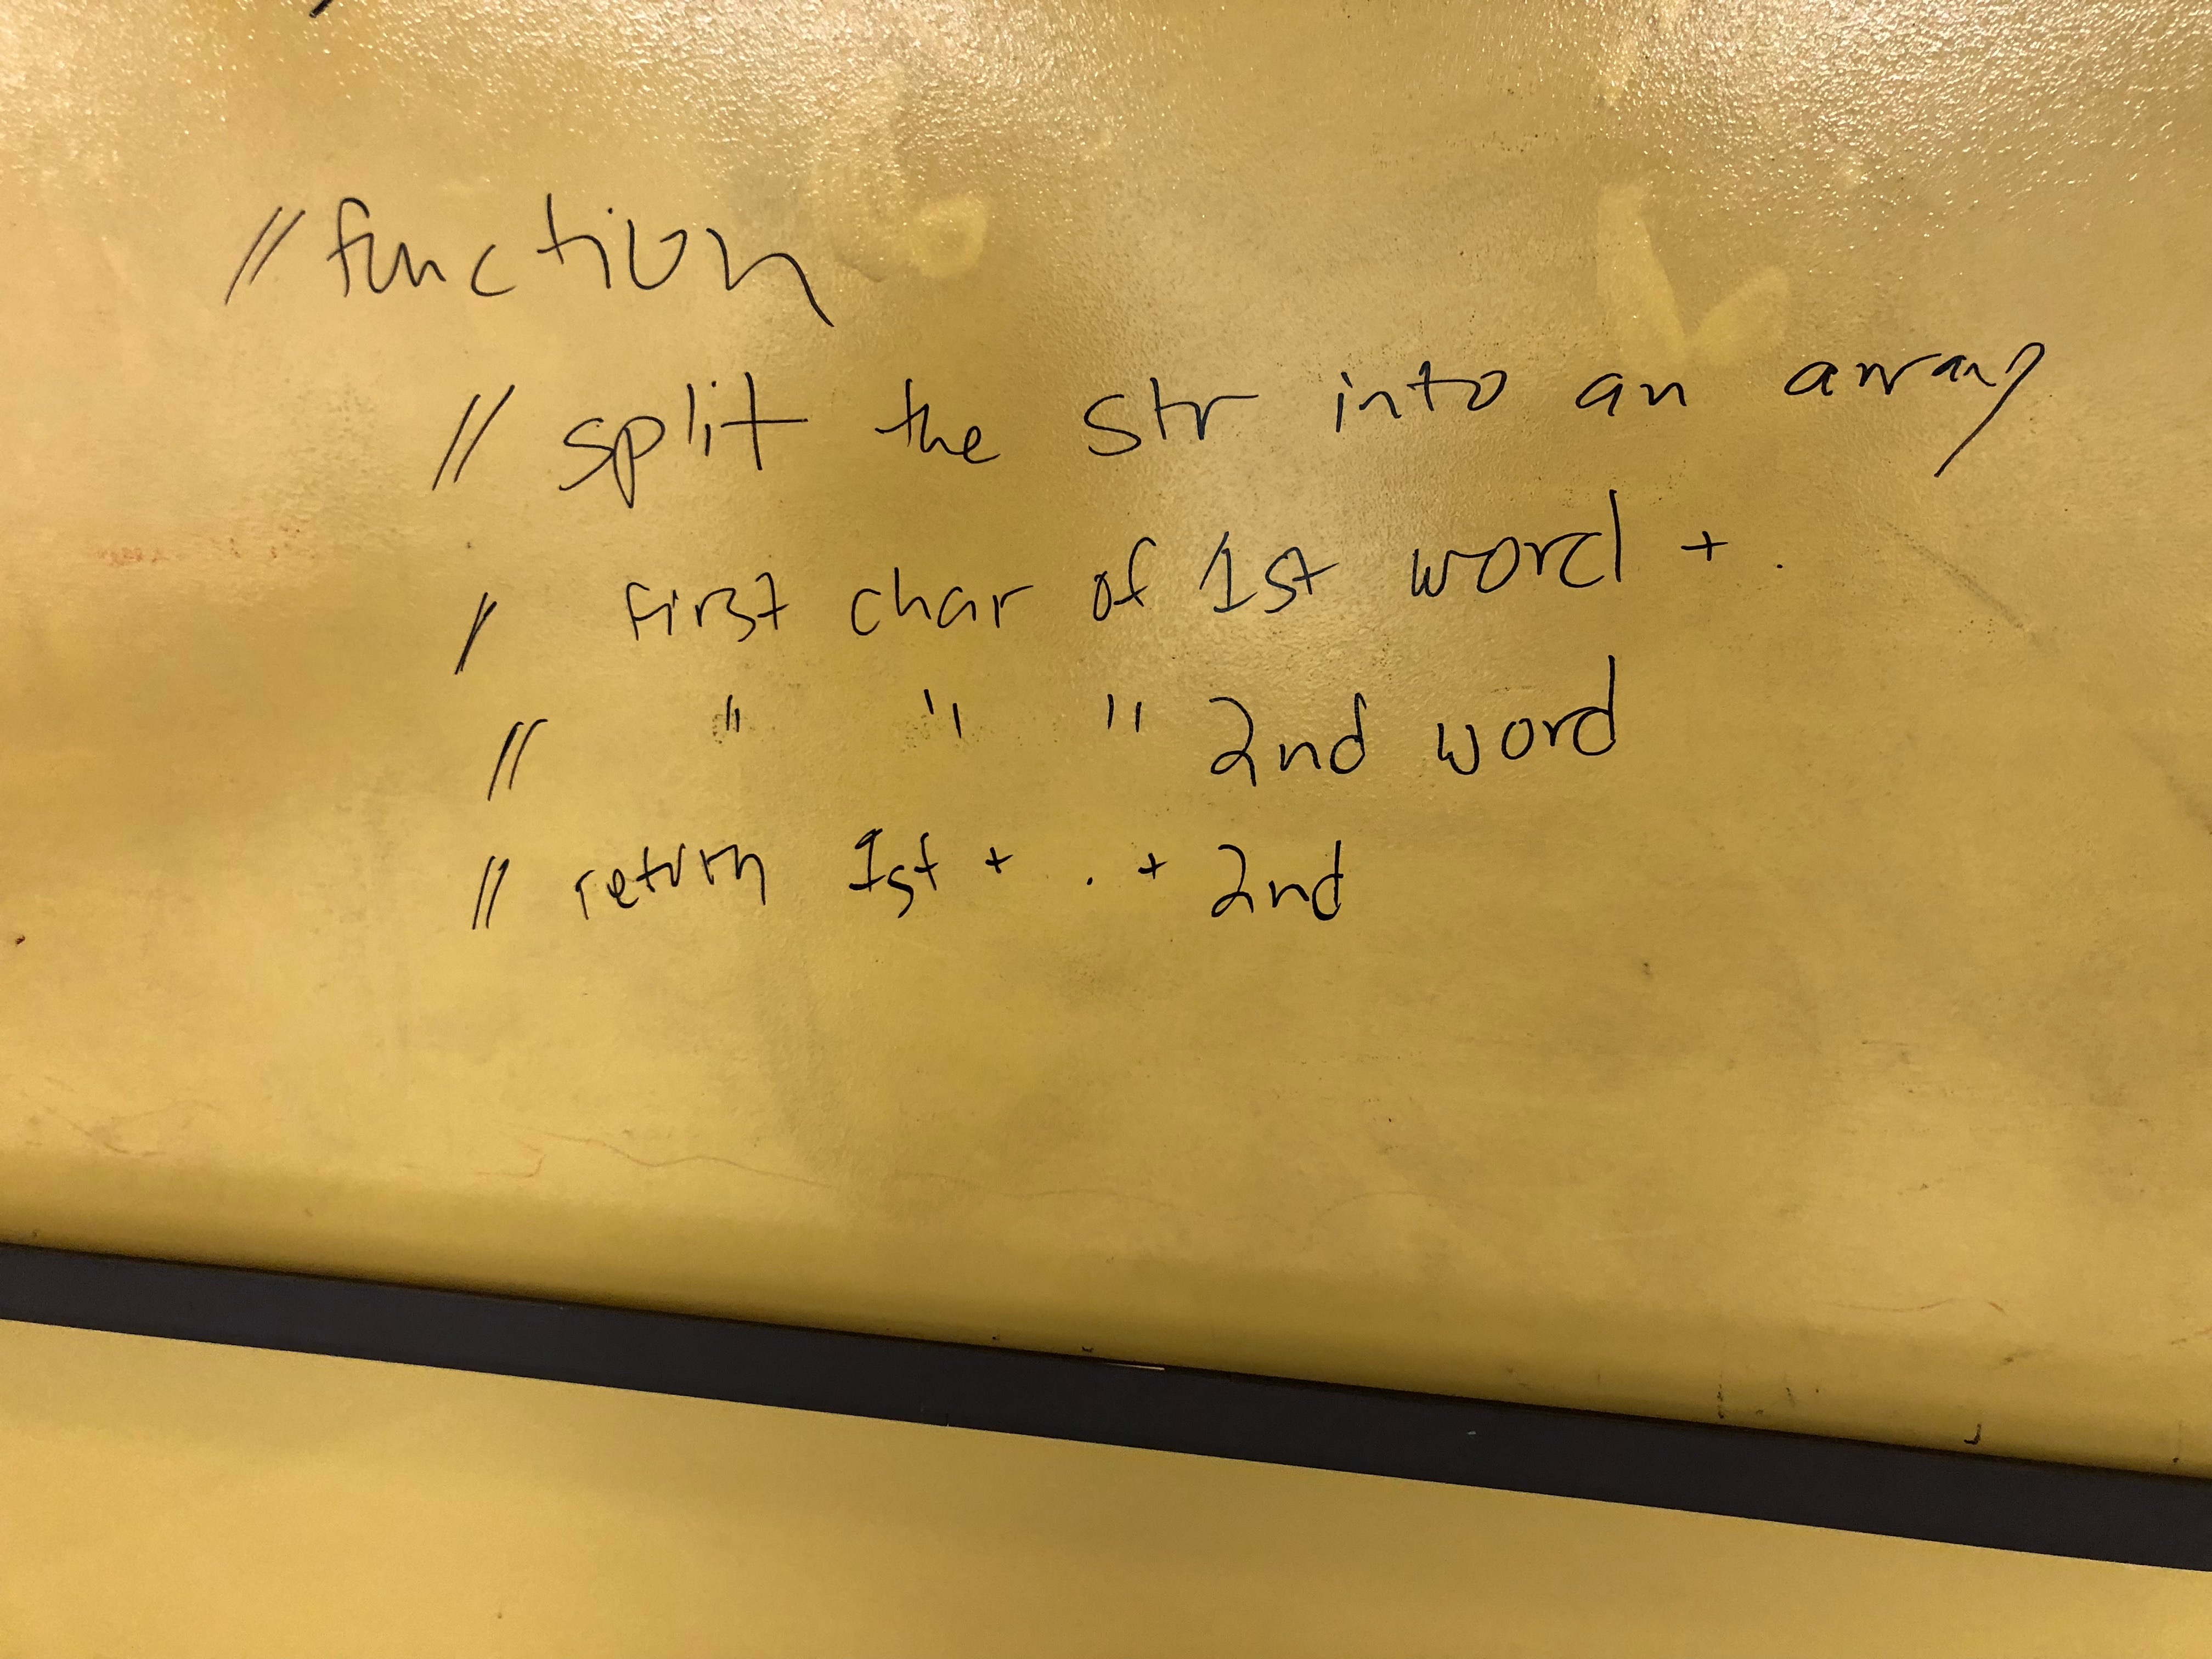 // function
// split the str into an array
// first char of 1st word + .
// " " " 2nd word
// return 1st + . + 2nd